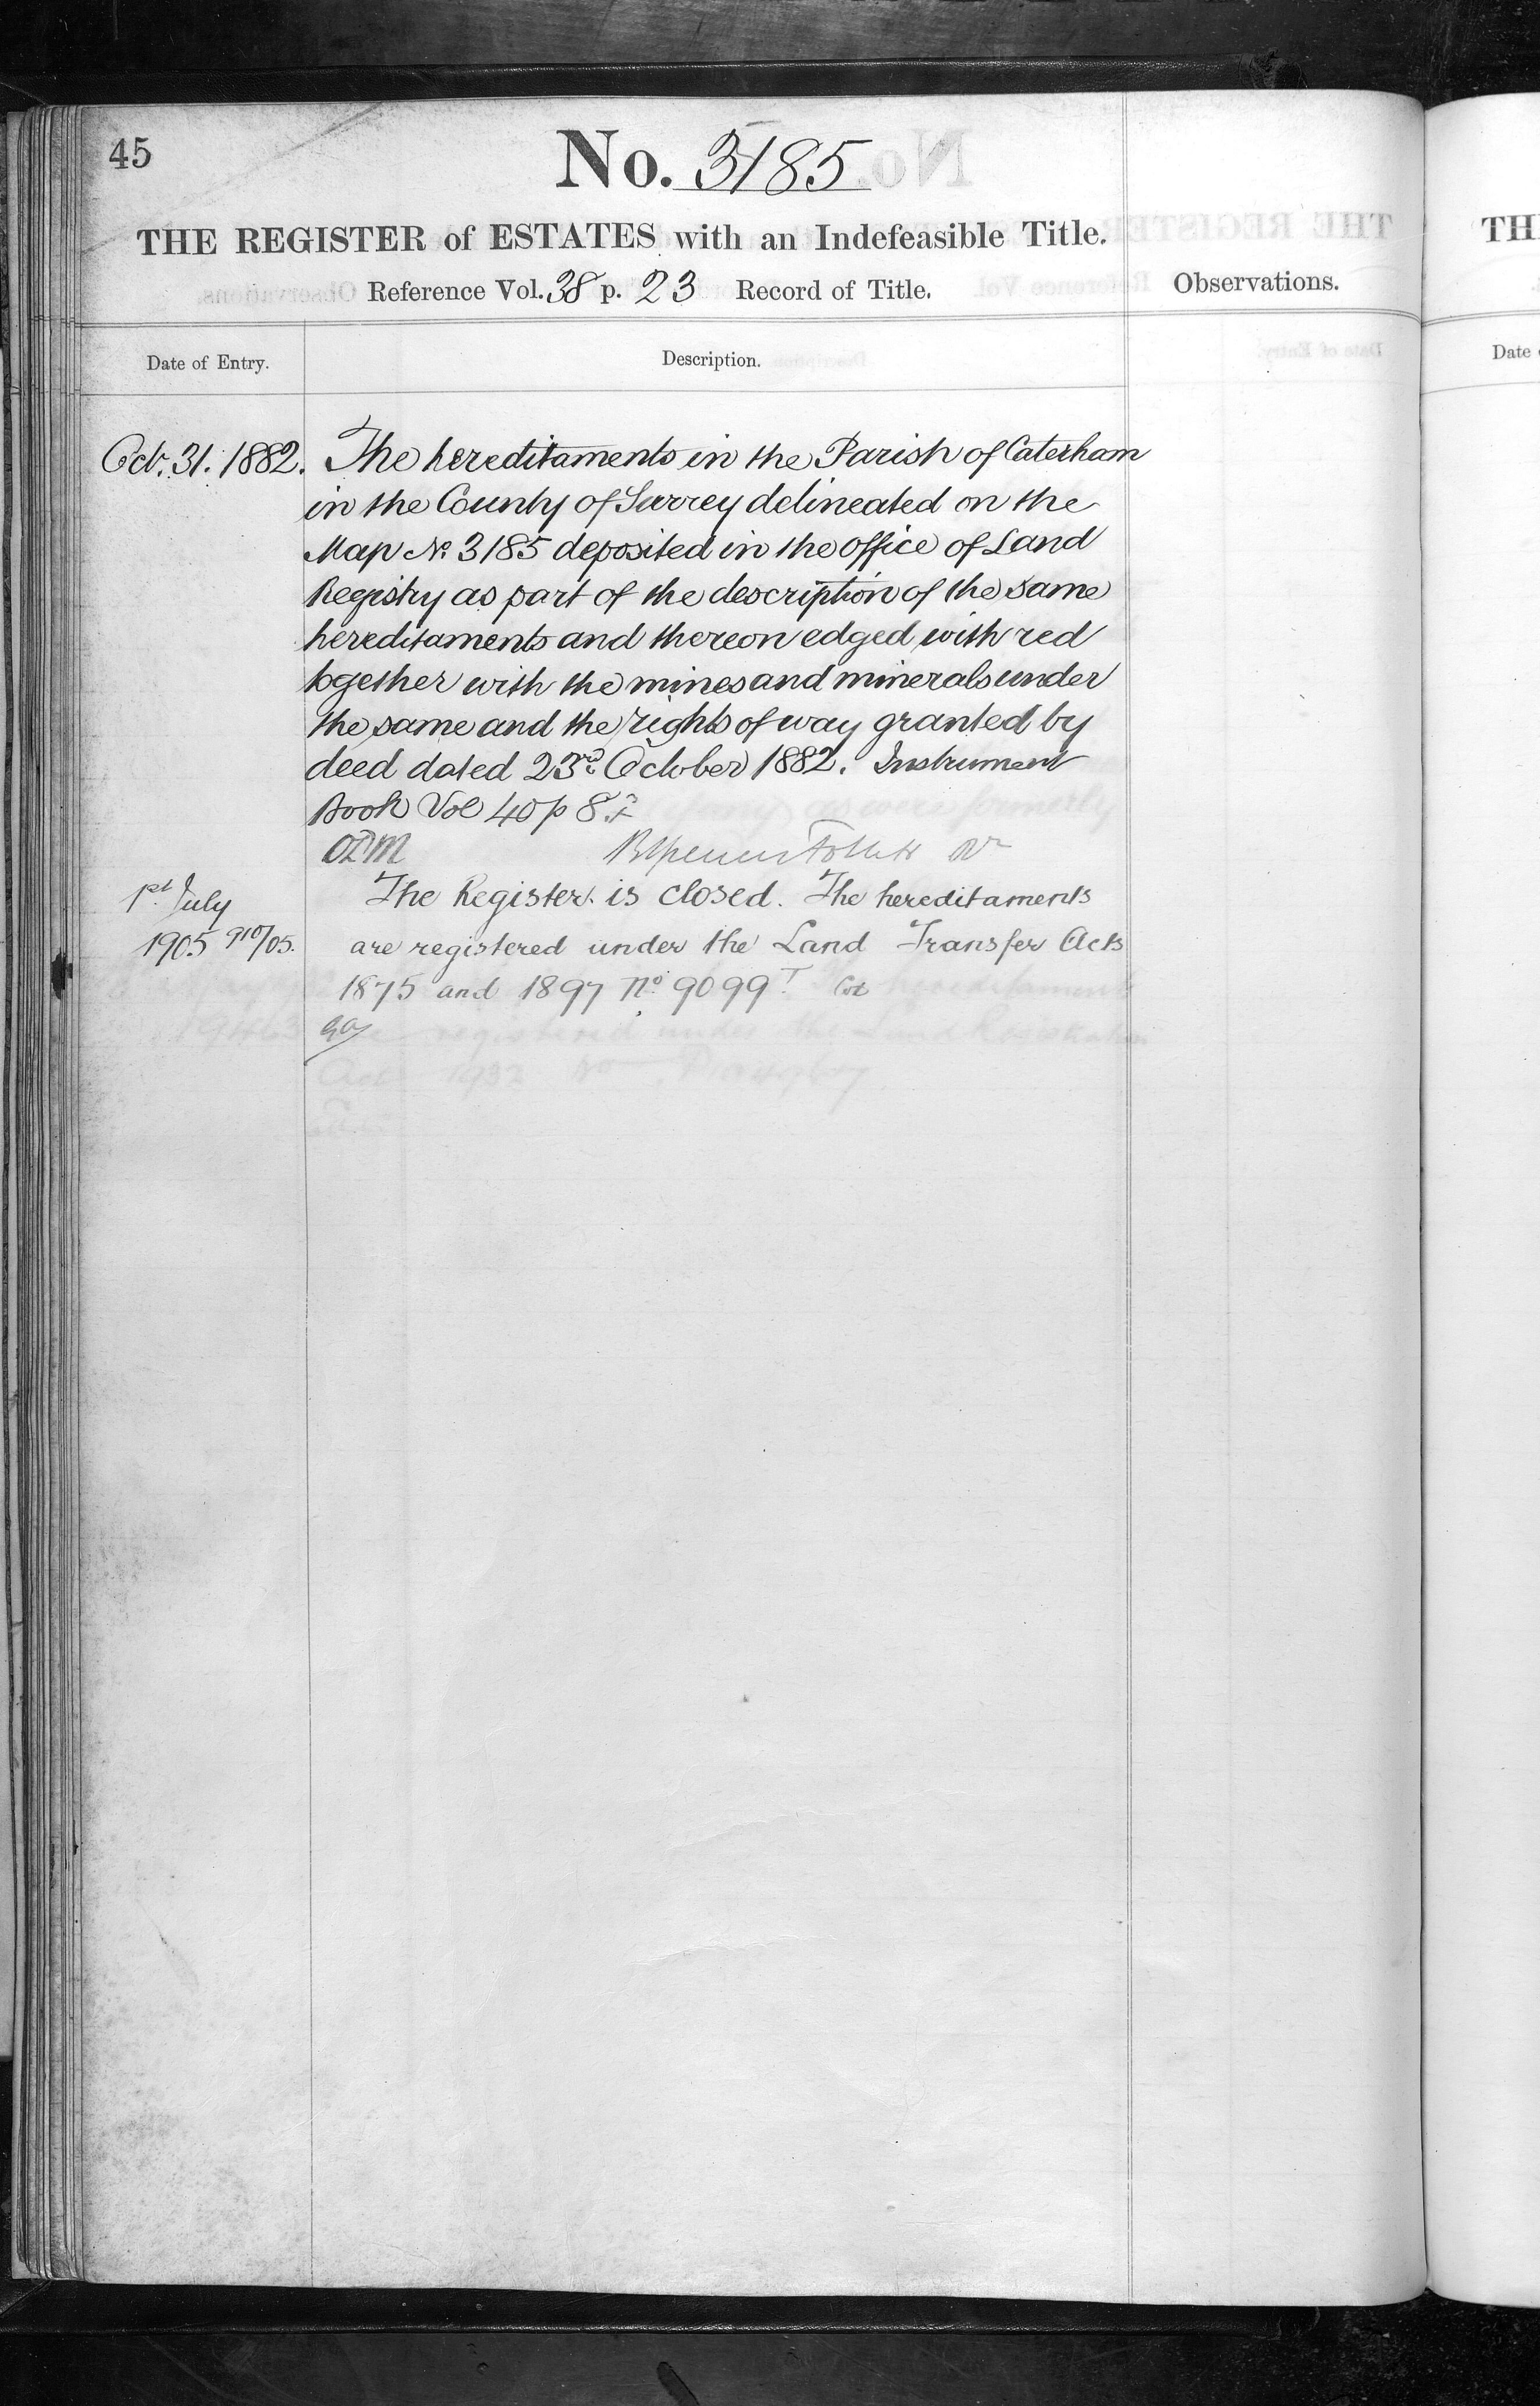 45
No. 3185
THE REGISTER of ESTATES with an Indefeasible Title.
Reference Vol. 38 p. 23 Record of Title.
Observations.
Date of Entry.
Description.
Oct. 31. 1882. The hereditaments in the Parish of Caterham
in the County of Surrey delineated on the
Map No. 3185 deposited in the office of Land
Registry as part of the description of the same
hereditaments and thereon edged with red
together with the mines and minerals under
the same and the rights of way granted by
deed dated 23rd October 1882. Instrument
Book Vol 40 p 8
1st July The Register is closed. The hereditaments
1905 910/05. are registered under the Land Transfer Acts
1875 and 1897 No. 9099
TH
Date